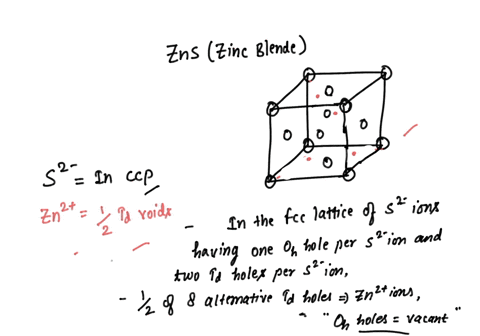 ZnS (Zinc Blende)
S²⁻ = In ccp
Zn²⁺ = 1/2 Td voids
- In the fcc lattice of S²⁻ ions
having one Oh hole per S²⁻ ion and
two Td holes per S²⁻ ion,
- 1/2 of 8 alternative Td holes ⇒ Zn²⁺ ions,
" " Oh holes = vacant "